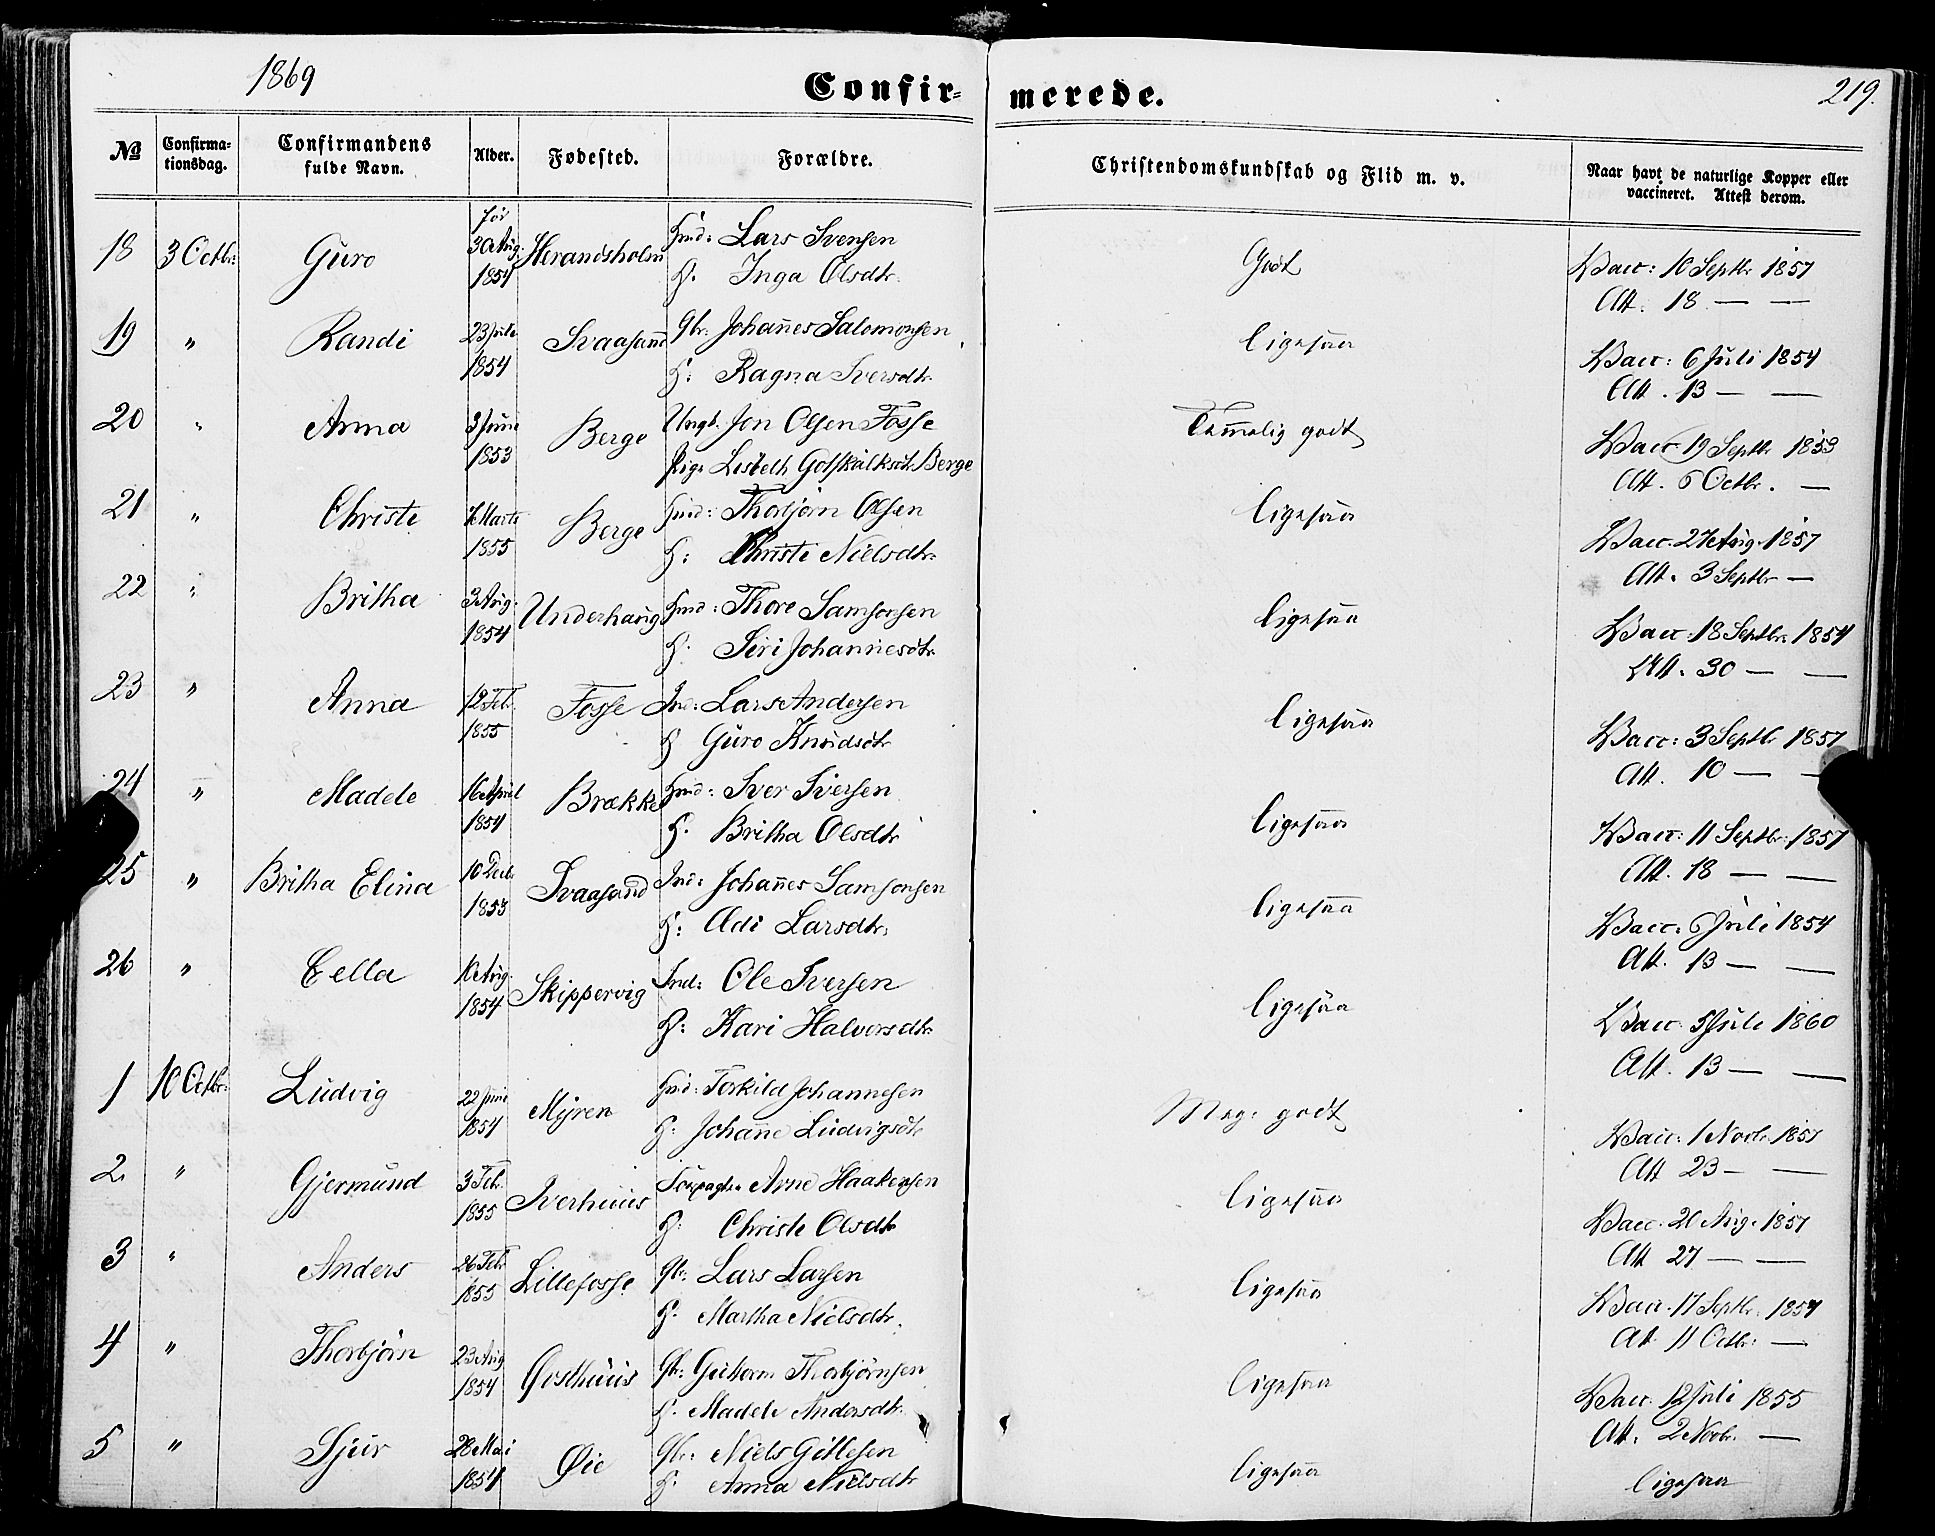 1869
Confir-
merede.
219.
№
Confirma-
tionsdag.
Confirmandens
fulde Navn.
Alder.
Fødested.
Forældre.
Christendomskundskab og Flid m. v.
Naar havt de naturlige Kopper eller
vaccineret. Attest derom.
18 3 Octbr: Guro 30 Aug. 1854 Herandsholm Hmd: Lars Svensen
H. Inga Olsdtr.
Godt
Vacc: 10 Septbr 1857
Att. 18 — —
19 " Randi 23 Juli 1854 Svaasand Gbr: Johannes Salomonsen
H: Ragna Iversdtr.
ligesaa
Vacc: 6 Juli 1854
Att. 13 — —
20 " Anna 3 Juni 1853 Berge Ungk. Jon Olsen Fosse
Pige Lisbeth Gotskalksdtr Berge
Temmelig godt
Vacc. 19 Septbr 1853
Att. 6 Octbr. —
21 " Christi Marts 1855 Berge Hmd: Thorbjørn Olsen
H: Christi Nielsdtr.
ligesaa
Vacc. 27 Aug. 1857
Att. 3 Septbr —
22 " Britha 3 Aug. 1854 Underhaug Hmd: Thore Samsonsen
H. Siri Johannesdtr.
ligesaa
Vacc. 18 Septbr. 1854
Att. 30 — —
23 " Anna 12 Feb. 1855 Fosse Ind: Lars Andersen
H Guro Knudsdtr
ligesaa
Vacc: 3 Septbr 1857
Att. 10 — —
24 " Madele 16 April 1854 Brække Hmd: Iver Iversen
H. Britha Olsdtr
ligesaa
Vacc: 11 Septbr. 1857
Att. 18 — —
25 " Britha Elina 10 Decbr 1853 Svaasand Ind: Johannes Samsonsen
H: Adi Larsdtr.
ligesaa
Vacc. 6 Juli 1854
Att. 13 — —
26 " Cella Aug. 1854 Skippervig Ind: Ole Iversen
H: Kari Halvorsdtr.
ligesaa
Vacc. 5 Juli 1860
Att. 13 — —
1 10 Octbr: Ludvig 22 Juni 1854 Myren Hmd: Torkild Johannesen
H: Johanne Ludvigsdtr
Meg. godt
Vacc: 1 Novbr. 1857
Att 23 — —
2. " Gjermund 3 Feb. 1855 Iverhuus Arne Haakensen
H. Christi Olsdtr
ligesaa
Vacc. 20 Aug. 1857
Att 27 — —
3 " Anders 26 Feb. 1855 Lillefosse Gbr: Lars Larsen
H. Martha Nielsdtr.
ligesaa
Vacc. 17 Septbr. 1857
Att 11 Octbr: —
4 " Thorbjørn 23 Aug 1854 Østhuus Gbr: Guttorm Thorbjørnsen
H. Madele Andersdtr.
ligesaa
Vacc. 12 Juli 1855
Att. 2 Novbr. —
5 " Sjur 28 Mai 1854 Øie Gbr: Niels Gitlesen
H. Anna Nielsdtr
ligesaa
ligesaa